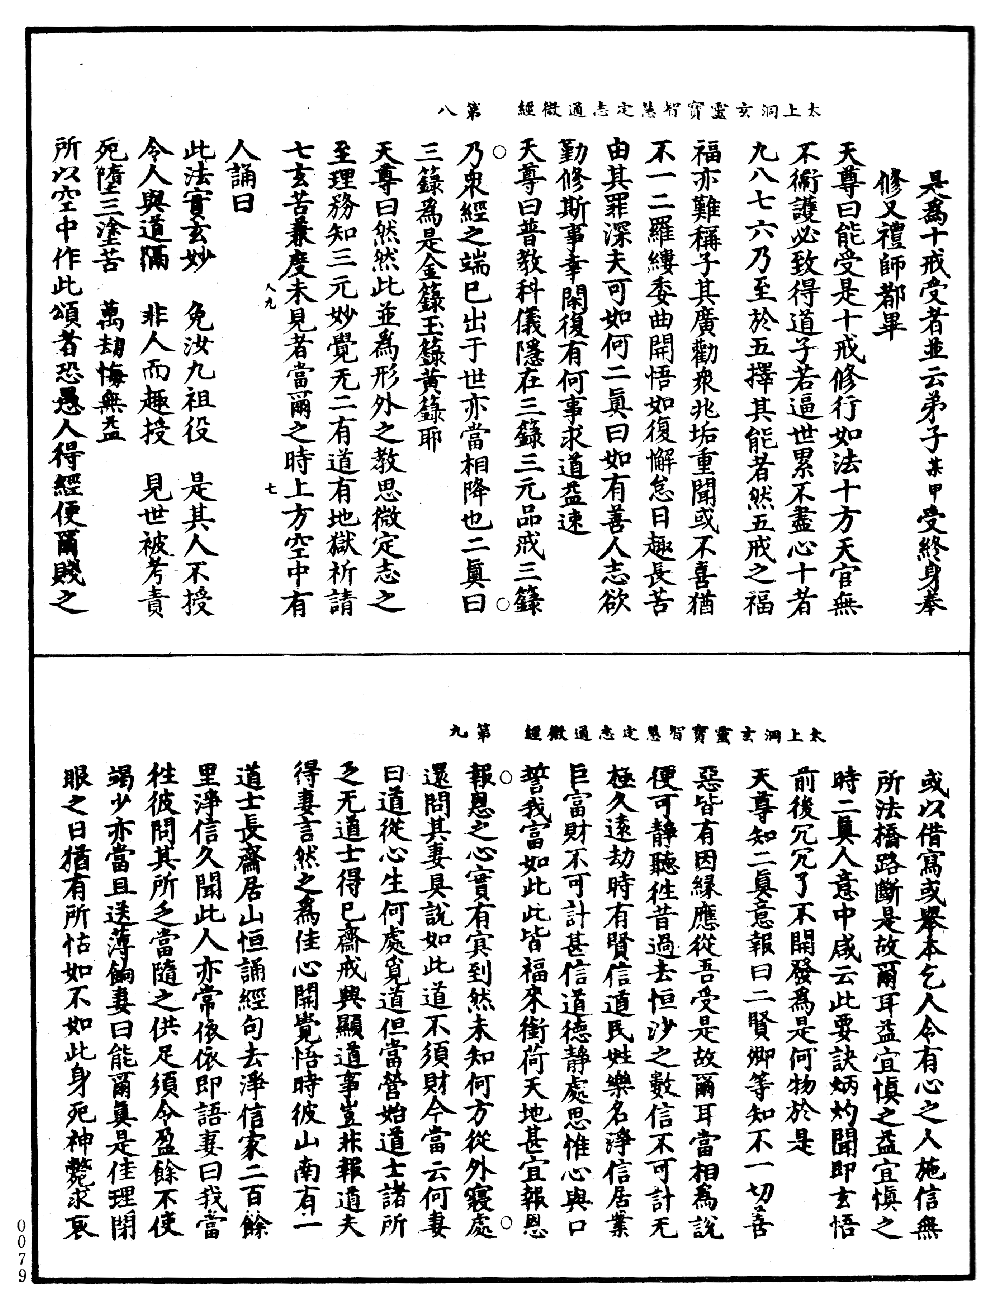 太上洞玄靈寶智慧定志通微經　第八
是爲十戒受者並云弟子某甲受終身奉
修又禮師都畢
天尊曰能受是十戒修行如法十方天官無
不衛護必致得道子若逼世累不盡心十者
九八七六乃至於五擇其能者然五戒之福
福亦難稱子其廣勸衆兆垢重聞或不喜猶
不一二羅縷委曲開悟如復懈怠日趣長苦
由其罪深夫可如何二眞曰如有善人志欲
勤修斯事幸閑復有何事求道益速
天尊曰普教科儀隱在三籙三元品戒三籙
乃衆經之端已出于世亦當相降也二眞曰
三籙爲是金籙玉籙黄籙耶
天尊曰然然此並爲形外之教思微定志之
至理務知三元妙覺无二有道有地獄祈請
七玄苦兼度未見者當爾之時上方空中有
八九
七
人誦曰
此法實玄妙　免汝九祖役　是其人不授
令人與道隔　非人而趣授　見世被考責
死墮三塗苦　萬劫悔無益
所以空中作此頌者恐愚人得經便爾賤之
太上洞玄靈寶智慧定志通微經　第九
或以借寫或舉本乞人令有心之人施信無
所法橋路斷是故爾耳益宜慎之益宜慎之
時二眞人意中咸云此要訣炳灼聞即玄悟
前後冗冗了不開發爲是何物於是
天尊知二眞意報曰二賢卿等知不一切善
惡皆有因緣應從吾受是故爾耳當相爲說
便可靜聽徃昔過去恒沙之數信不可計无
極久遠劫時有賢信道民姓樂名淨信居業
巨富財不可計甚信道德靜處思惟心與口
誓我富如此此皆福來銜荷天地甚宜報恩
報恩之心實有冥到然未知何方從外寢處
還問其妻具說如此道不須財今當云何妻
曰道從心生何處覓道但當營始道士諸所
乏无道士得已齋戒興顯道事豈非報道夫
得妻言然之爲佳心開覺悟時彼山南有一
道士長齋居山恒誦經句去淨信家二百餘
里淨信久聞此人亦常依依即語妻曰我當
徃彼問其所乏當隨之供足須令盈餘不使
竭少亦當且送薄餉妻曰能爾眞是佳理閉
眼之日猶有所怙如不如此身死神斃求哀
0079